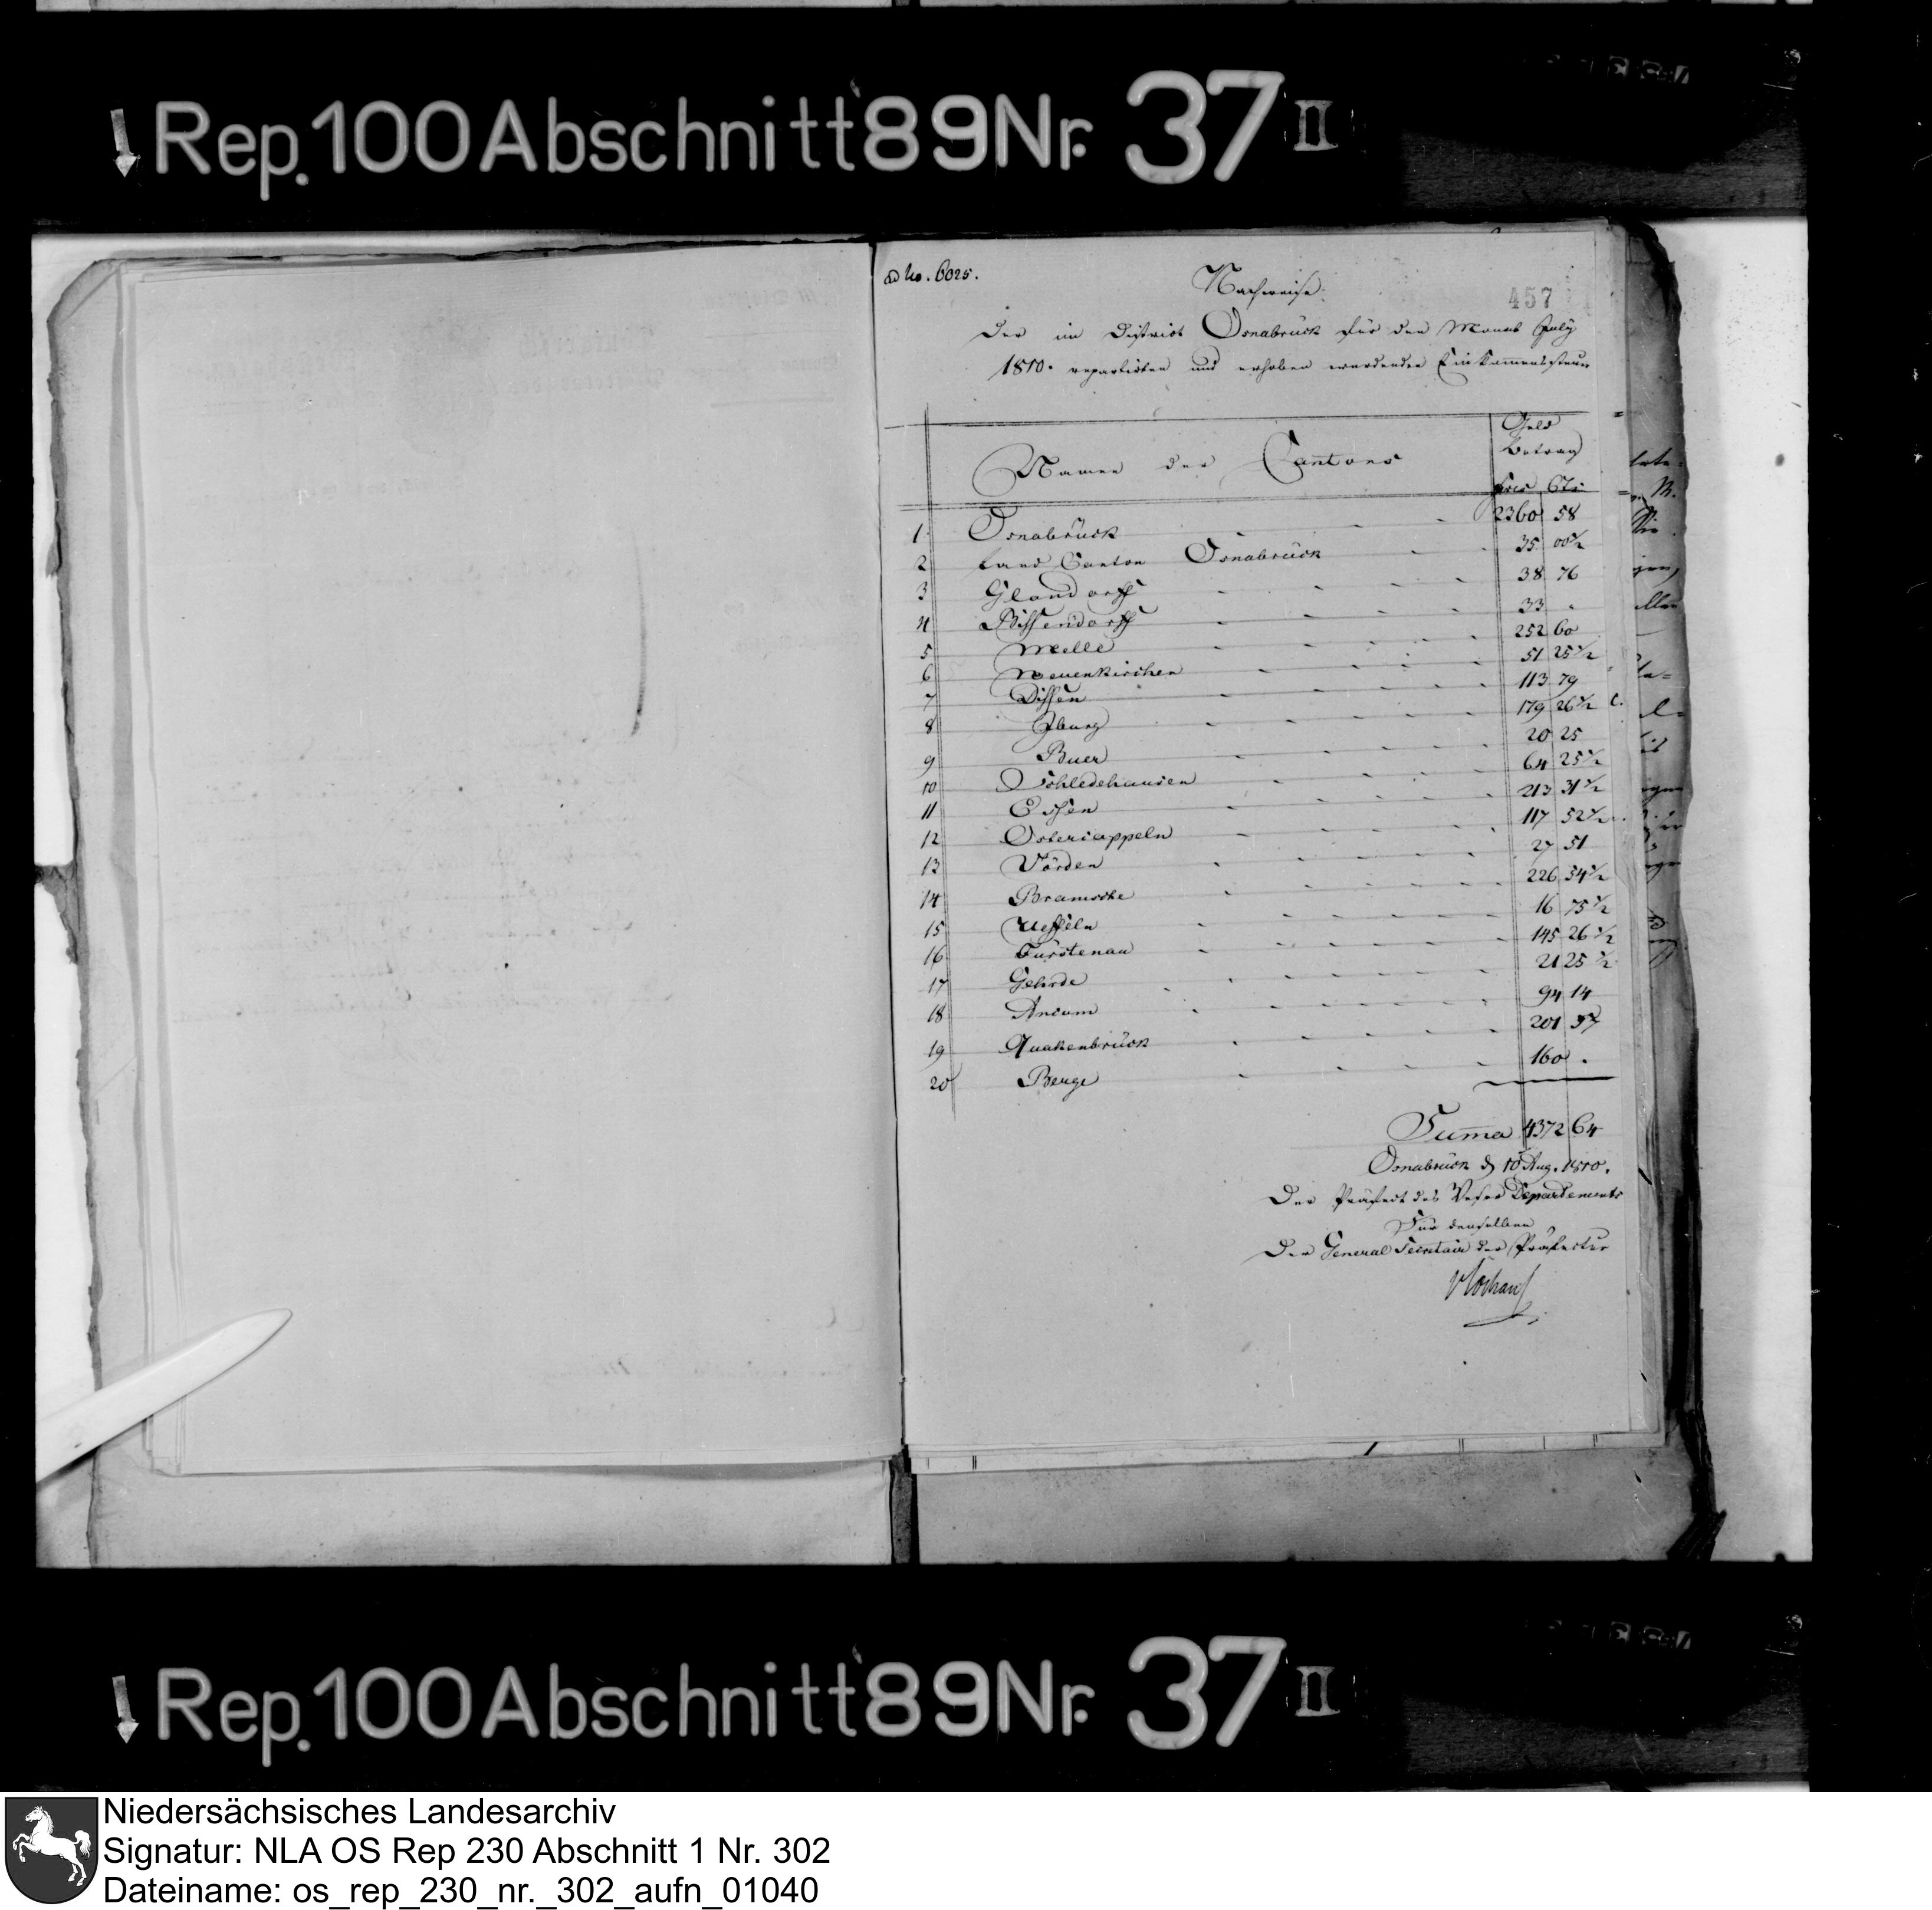 Rep. 100 Abschnitt 89 Nr. 37 II
ad No. 6025.
457
Nachweise
der im District Osnabrück für den Monat July
1810. repartirten und erhoben werdenden Einkommensteuer
Namen der Cantons
Geld
Betrag
frcs Cts
1 Osnabrück 2360 58
2 Land Canton Osnabrück 35 00 1/2
3 Glandorff 38 76
4 Bissendorff 33 -
5 Melle 252 60
6 Neuenkirchen 51 25 1/2
7 Dissen 113 79
8 Iburg 179 26 1/2
9 Buer 20 25
10 Schledehausen 64 25 1/2
11 Essen 213 31 1/2
12 Ostercappeln 117 52 1/2
13 Vörden 27 51
14 Bramsche 226 54 1/2
15 Ueffeln 16 75 1/2
16 Fürstenau 145 26 1/2
17 Gehrde 21 25 1/2
18 Ancum 94 14
19 Quakenbrück 201 57
20 Berge 160 .
Summa 4372 64
Osnabrück d 10 Aug. 1810.
Der Präfect des Weser Departements
Für denselben
Der General Secretair der Präfectur
Rep. 100 Abschnitt 89 Nr. 37 II
Niedersächsisches Landesarchiv
Signatur: NLA OS Rep 230 Abschnitt 1 Nr. 302
Dateiname: os_rep_230_nr._302_aufn_01040